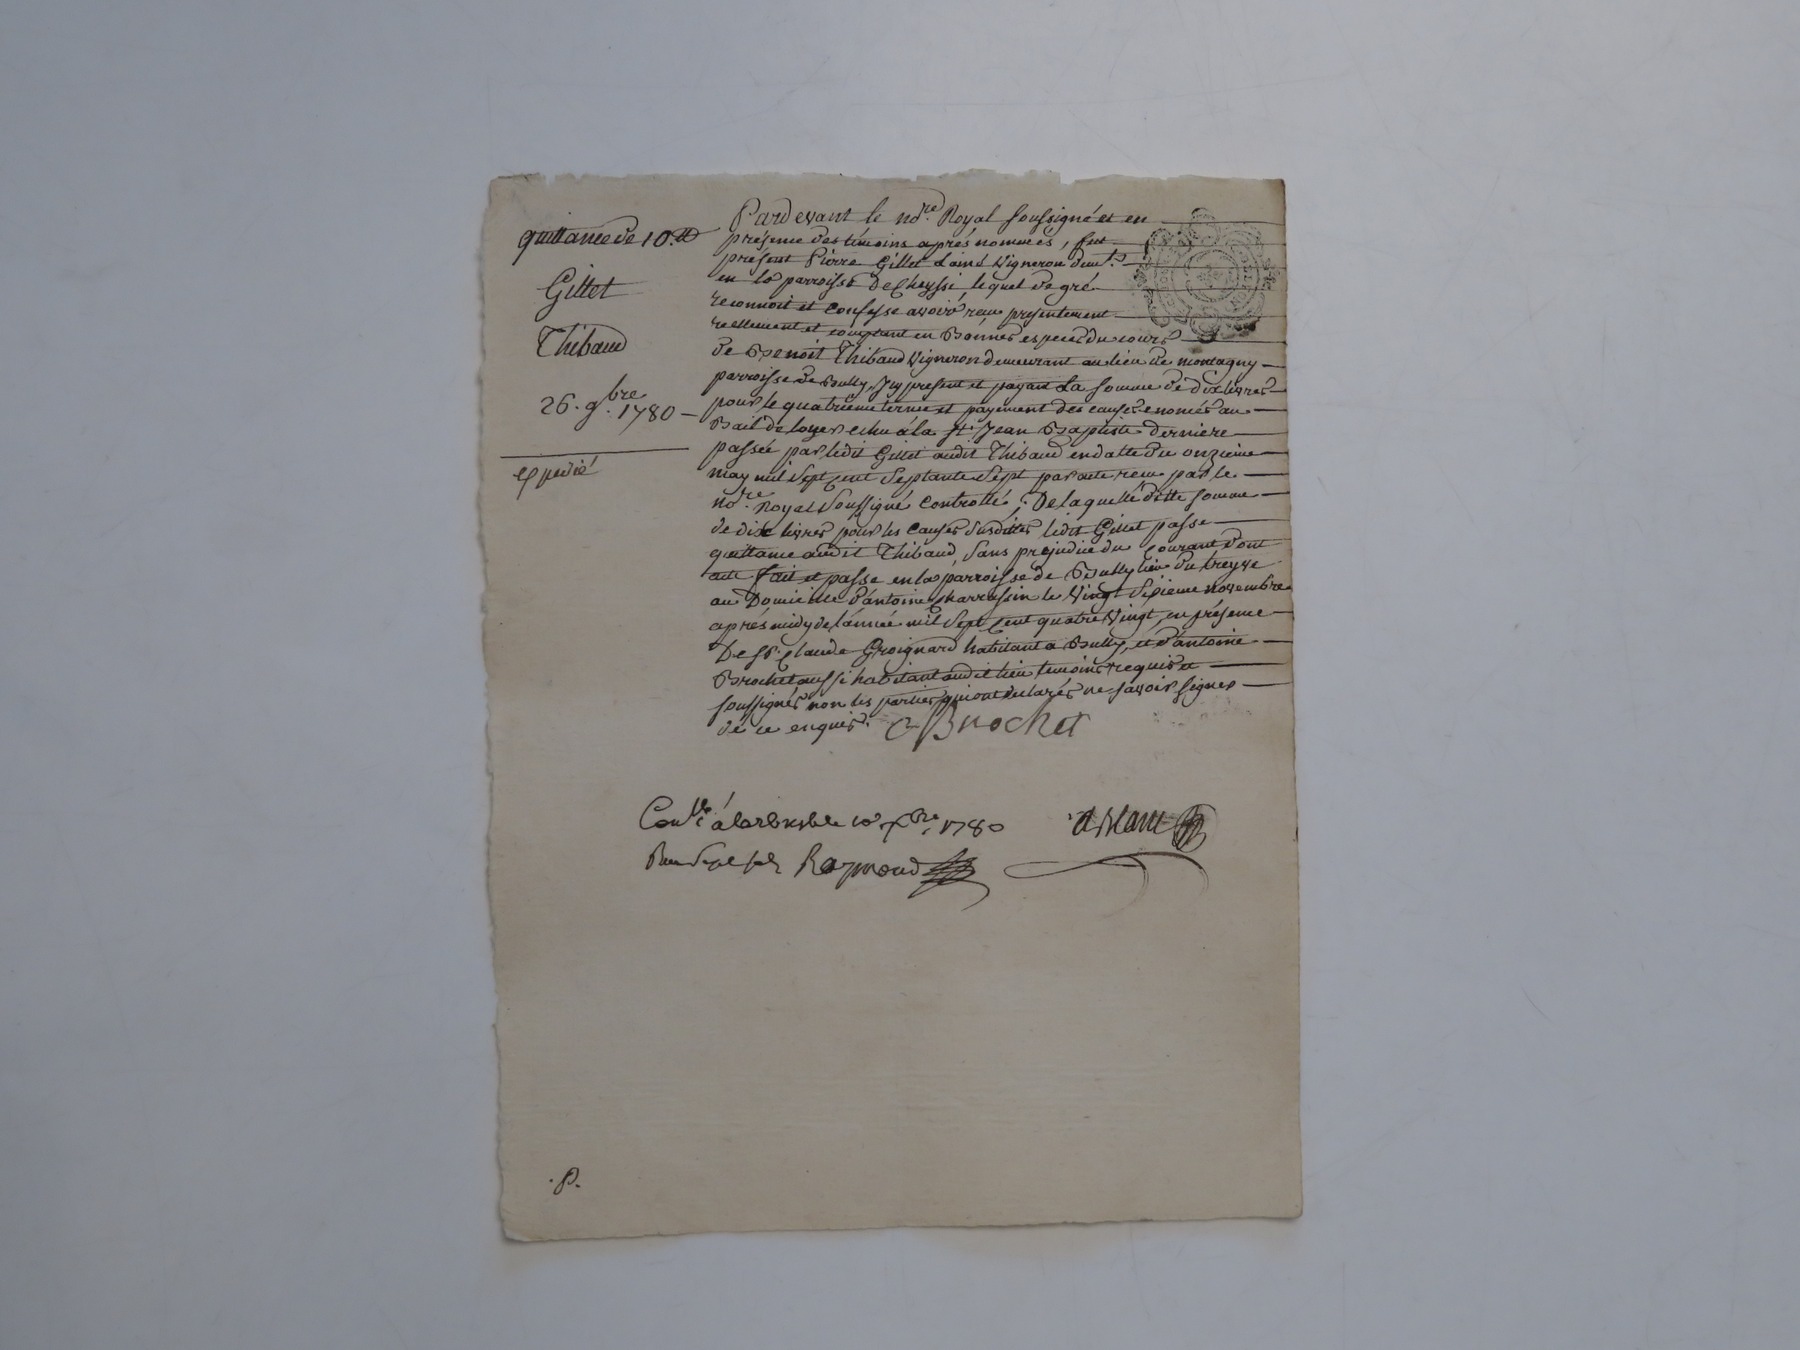 quittance de 10.tt
Gillet
Thibaud
26. 9.bre 1780
expedié
Pardevant le no.re Royal soussigné et en
présence des témoins après nommés, fut
présent Pierre Gillet L'ainé Vigneron dem.t
en la parroisse de Cheyssi, lequel de gré
reconnoit et confesse avoir reçu présentement
reellement et comptant en Bonnes especes du cours
de Benoit Thibaud Vigneron demeurant au lieu de montagny
parroisse de Bully, Icy présent et payant La somme de dix livres
pour le quatrième terme et payement des causes enoncés au
Bail de loyer echu à la St. Jean Baptiste dernière
passée par ledit Gillet audit Thibaud en datte du onzieme
may mil sept cent septante sept par acte reçu par le
no.re Royal soussigné controllé; De laquelle ditte somme
de dix livres pour les causes susdittes ledit Gillet passe
quittance audit Thibaud, sans prejudice du courant dont
acte fait et passé en la parroisse de Bully lieu du
au Domicille d'antoine Charrassin le Vingt sixieme novembre
après midy de l'année mil sept cent quatre Vingt, en présence
De Sr. Claude Groignard habitant a Bully, et d'antoine
Brochet aussi habitant audit lieu temoins requis et
soussignés non les parties qui ont declarés ne savoir signer
de ce enquis. Brochet
Con.lé à 10 Xbre 1780
Raymond
.P.